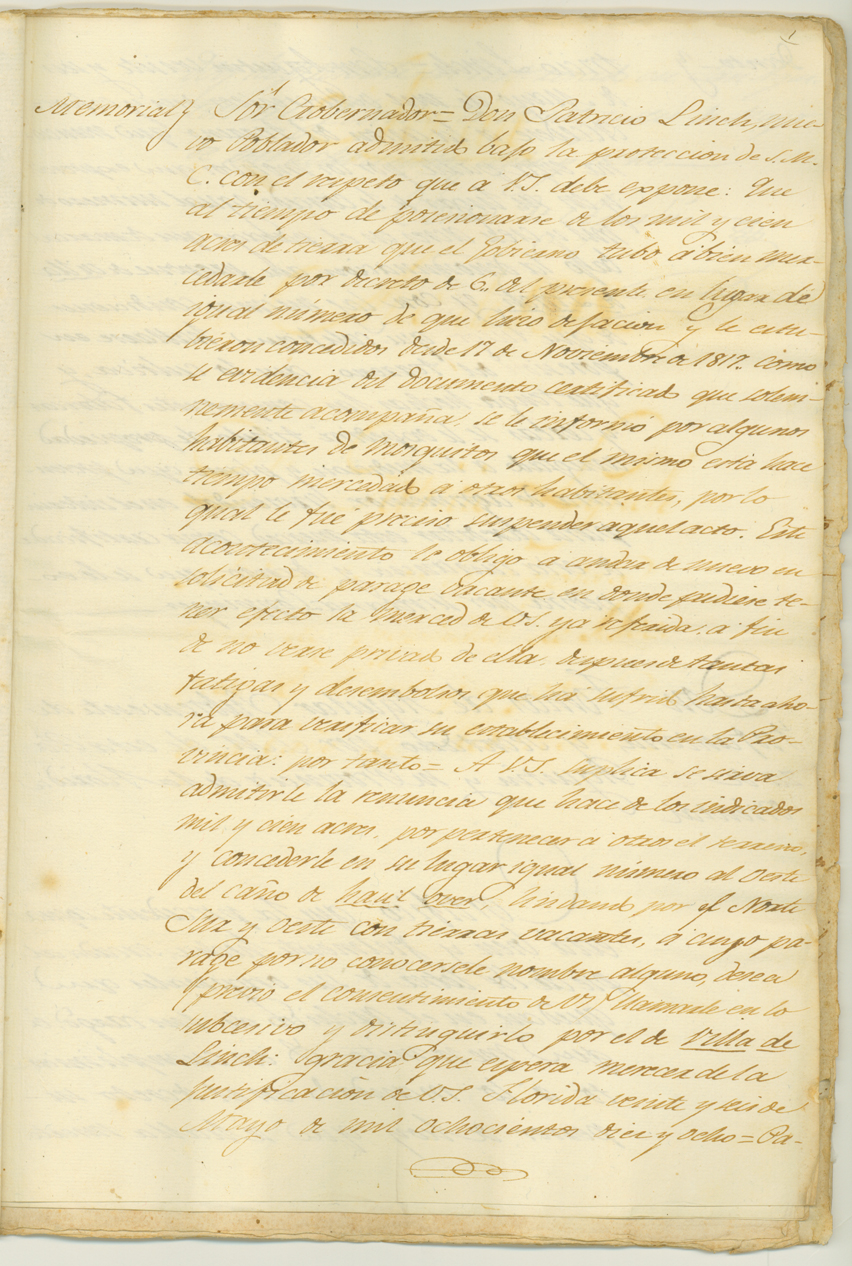 Memorial} Sör Gobernador = Don Patricio Linch, nue-
vo Poblador admitido bajo la proteccion de S. M.
C. con el respeto que á V.S. debe expone: Que
al tiempo de posesionarse de los mil y cien
acres de tierra que el Gobierno tubo á bien mer-
cedarle por decreto de 6. del presente, en lugar de
igual número de que hizo desacion, y le estu-
bieron concedidos desde 17 de Noviembre de 1817. como
se evidencia del documento certificado que solem-
nemente acompaña, se le informó por algunos
habitantes de Mosquitos que el mismo está hace
tiempo mercedado á otros habitantes, por lo
qual le fué preciso suspender aquel acto. Este
acontecimiento le obligo á andar de nuevo en
solicitud de parage vacante en donde pudiese te-
ner efecto la merced de V.S. ya referida, á fin
de no verse privado de ella, despues de tantas
fatigas y desembolsos que há sufrido hasta aho-
ra para verificar su establecimiento en la Pro-
vincia: por tanto = A V.S. suplica se sirva
admitirle la renuncia que hace de los indicados
mil y cien acres, por pertenecer á otros el terreno,
y concederle en su lugar igual número al Oeste
del caño de haul over, lindando por el Norte
Sur y Oeste con tierras vacantes, á cuyo pa-
rage por no conocersele nombre alguno, desea
(previo el consentimiento de VS) llamarle en lo
subcesivo y distinguirlo por el de Villa de
Linch: gracia que espera merecer de la
justificación de V.S. Florida veinte y seis de
Mayo de mil ochocientos diez y ocho = Pa-